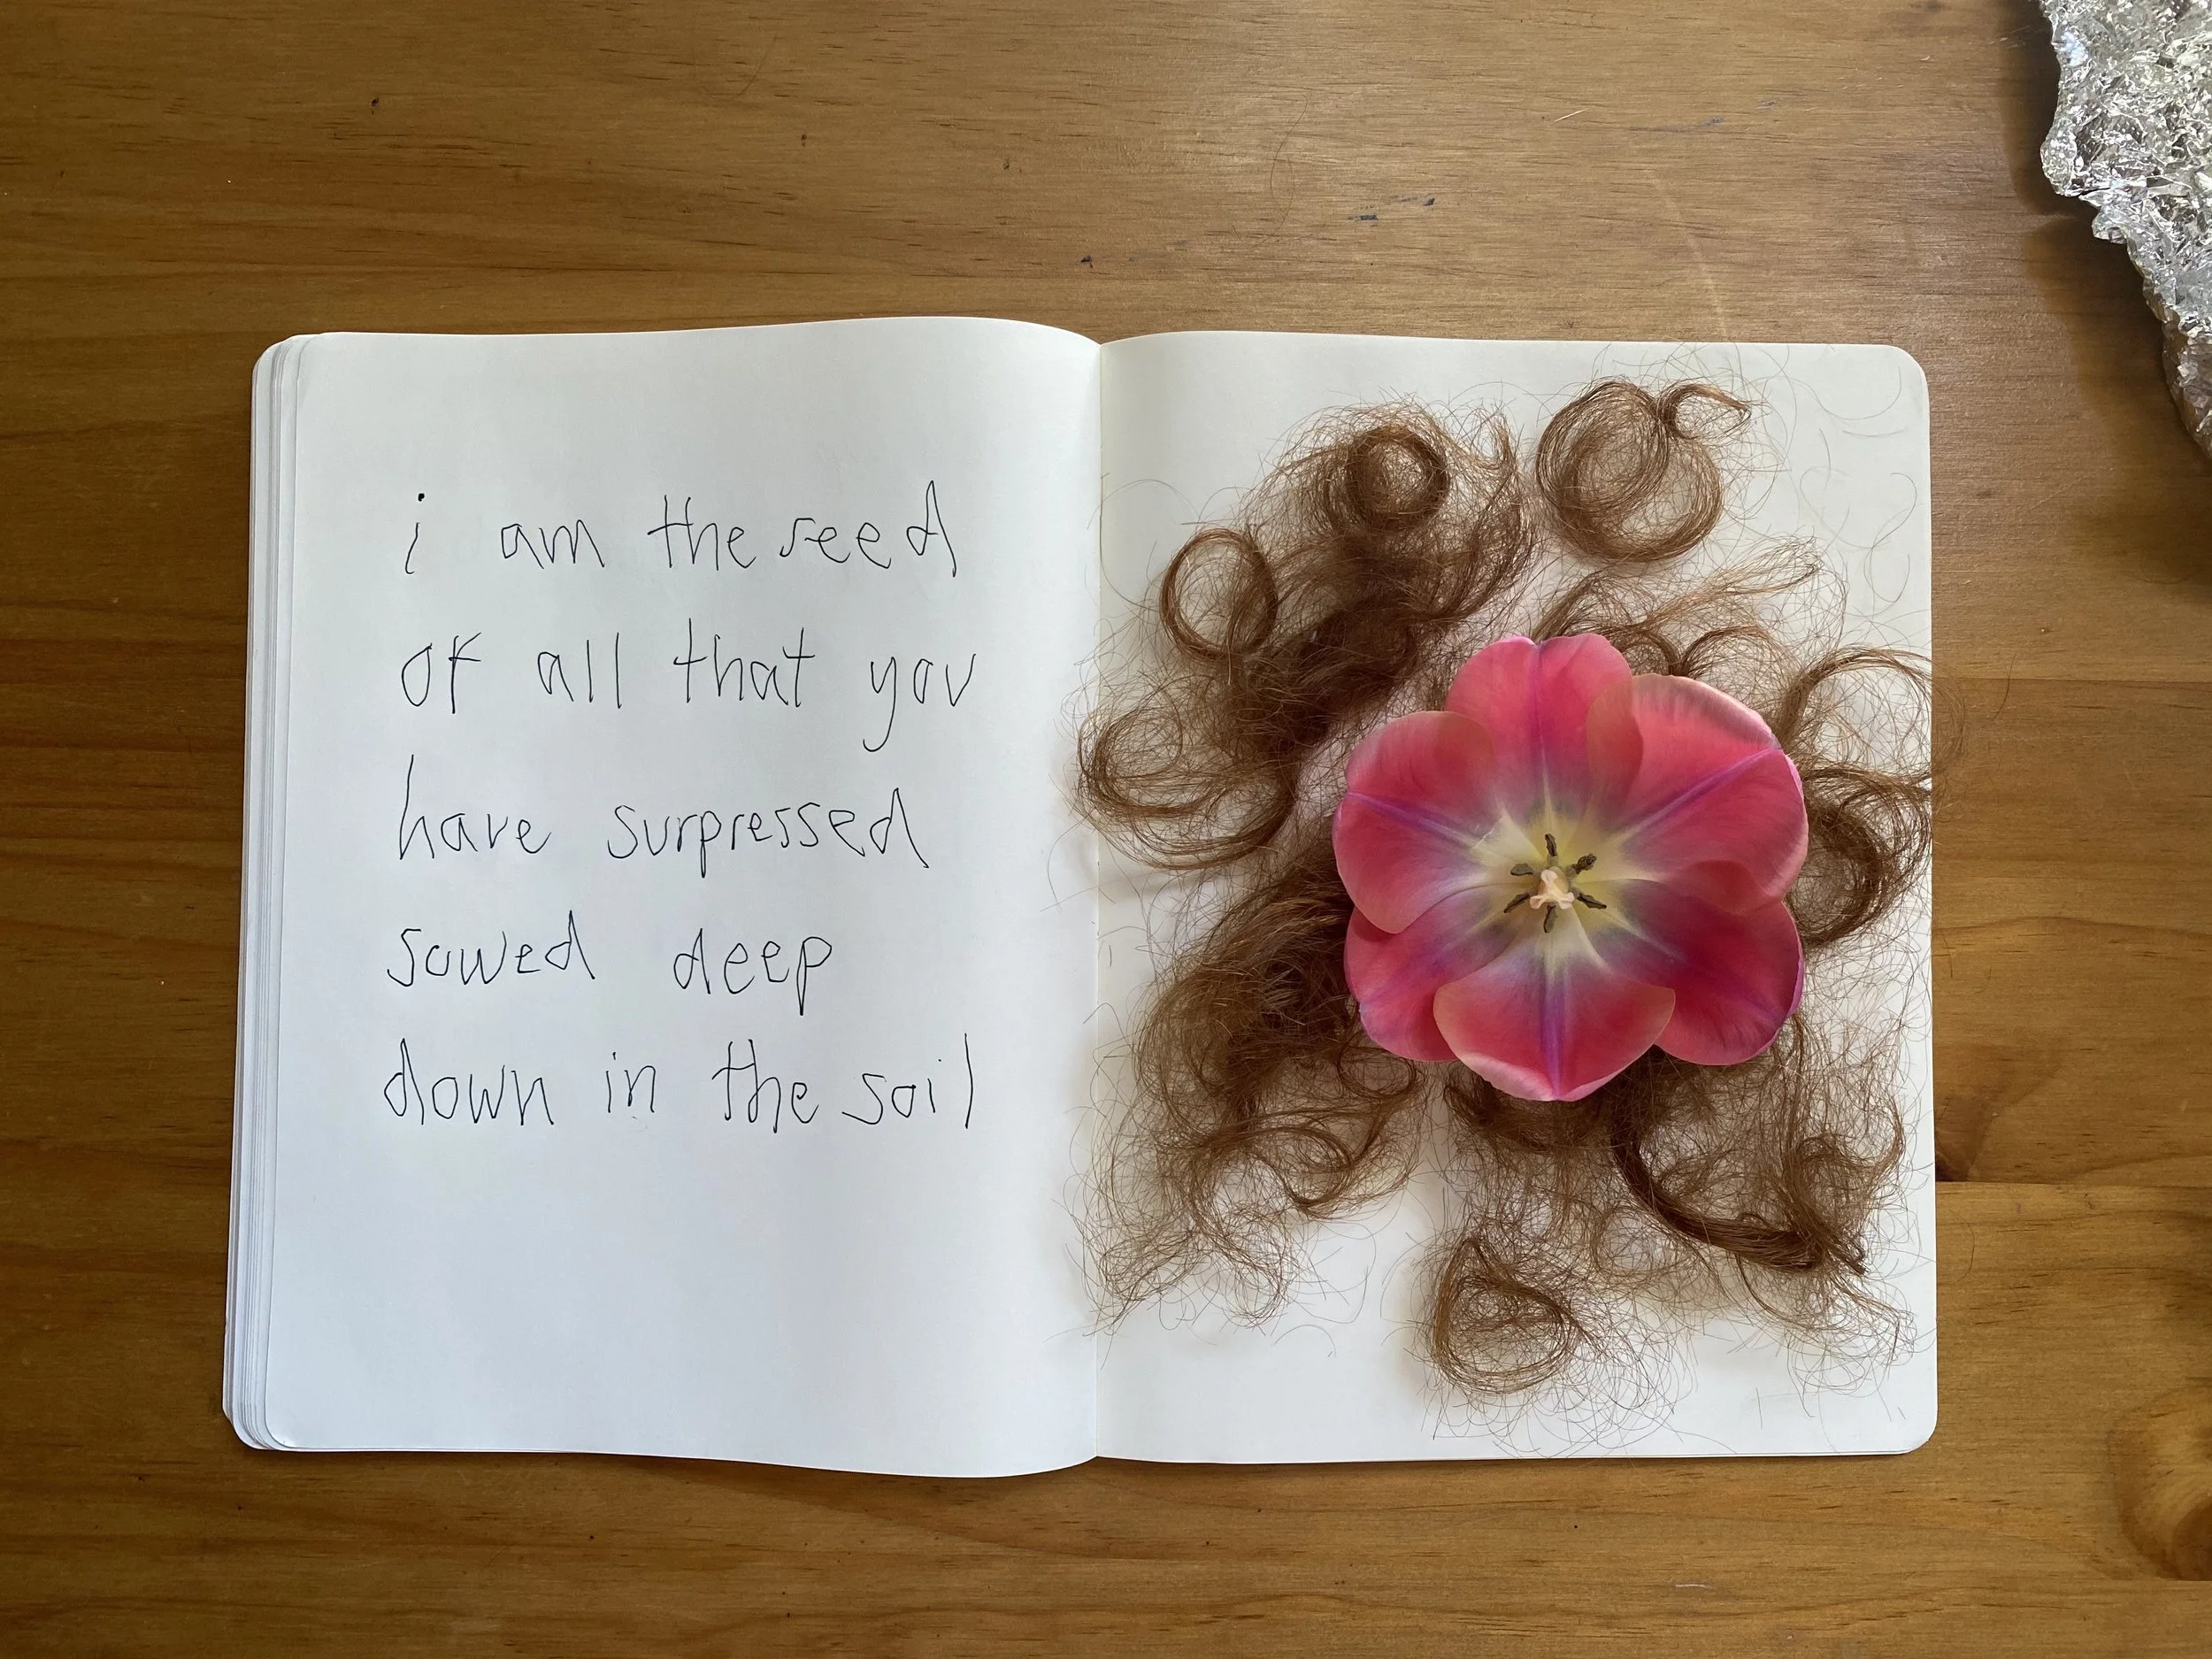 i am the seed
of all that you
have surpressed
sowed deep
down in the soil